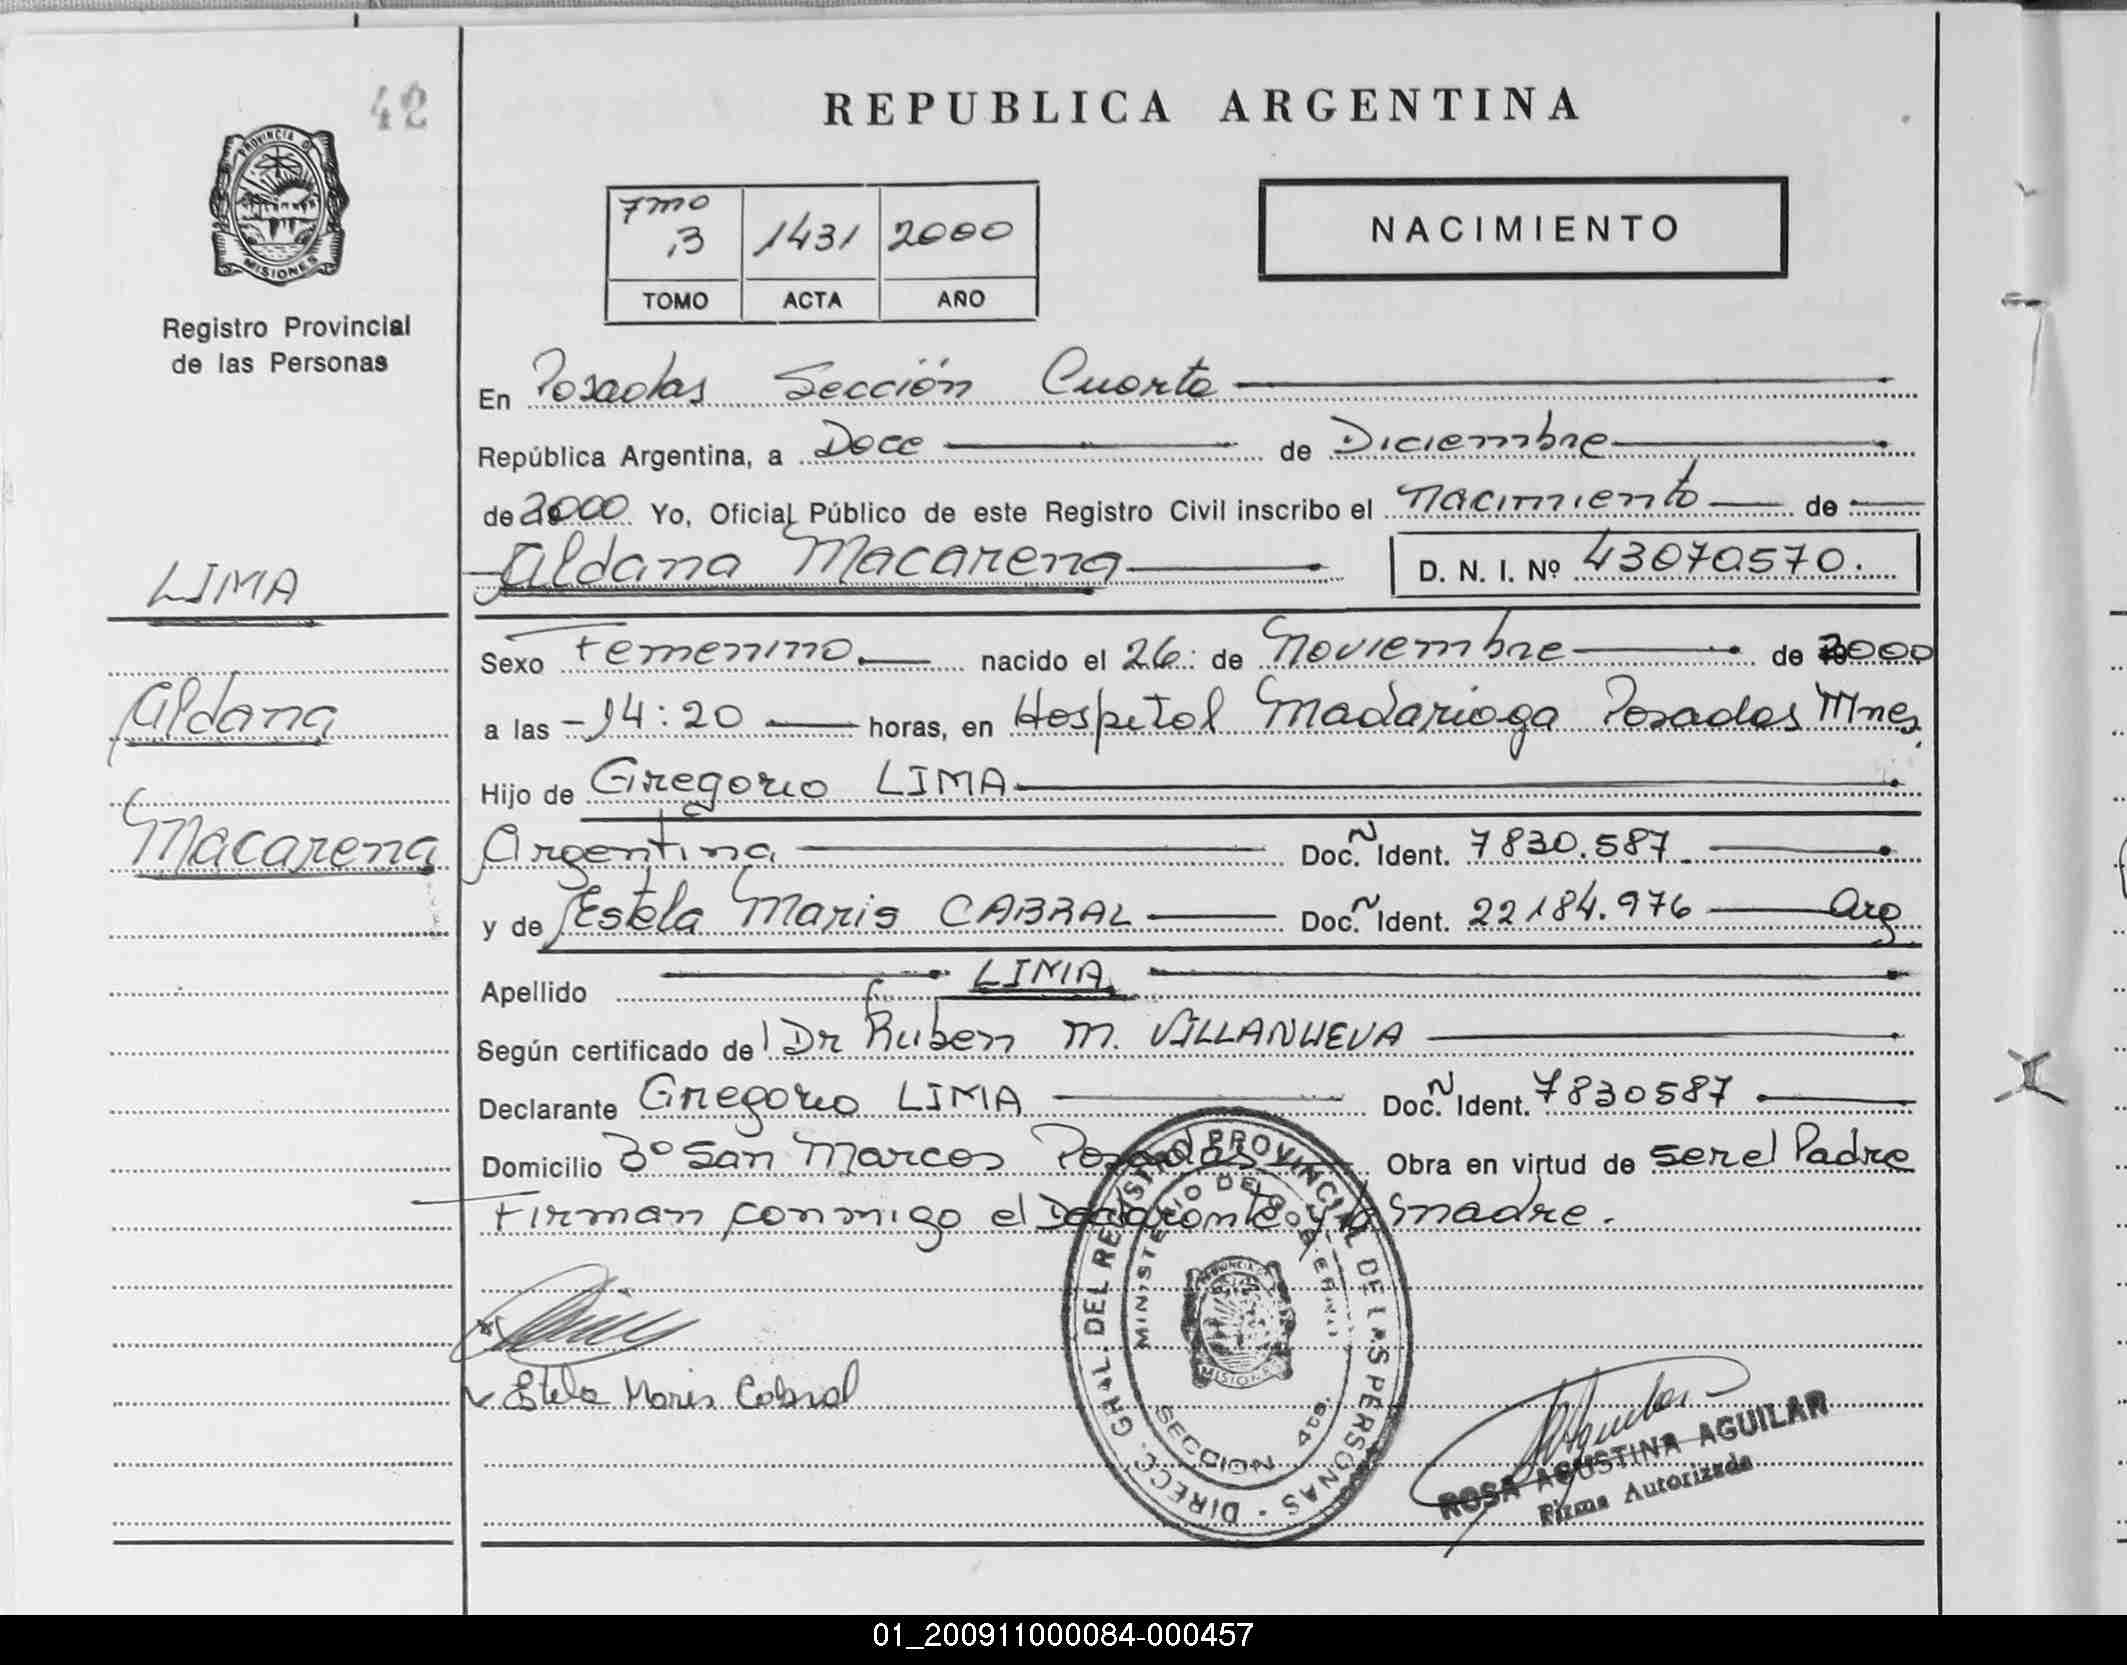 42
REPUBLICA ARGENTINA
PROVINCIA D
MISIONES
Registro Provincial
de las Personas
7mo
3 1431 2000
TOMO ACTA AÑO
NACIMIENTO
En Posadas Sección Cuarta
República Argentina, a Doce de Diciembre
de 2000 Yo, Oficial Público de este Registro Civil inscribo el nacimiento de
Aldana Macarena D. N. I. Nº 43070570.
LIMA
Aldana
Macarena
Sexo Femenino nacido el 26 de Noviembre de 2000
a las 14:20 horas, en Hospital Madariaga Posadas Mnes
Hijo de Gregorio LIMA
Argentina Doc. N Ident. 7830.587
y de Estela Maris CABRAL Doc. N Ident. 22184.976 Arg
Apellido LIMA
Según certificado de Dr Ruben M. VILLANUEVA
Declarante Gregorio LIMA Doc. N Ident. 7830587
Domicilio Bº San Marcos Posadas Obra en virtud de ser el Padre
Firman conmigo el Declarante y la madre.
Estela Maris Cabral
DIRECC. GRAL. DEL REGISTRO PROVINCIAL DE LAS PERSONAS
MINISTERIO DE GOBIERNO
MISIONES
SECCION 4ta.
ROSA AGUSTINA AGUILAR
Firma Autorizada
01_200911000084-000457